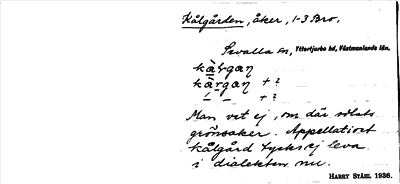 Kålgården, åker, 1-3 Bro.
Svalla sn, Yttertjurbo hd, Västmanlands län.
kàlgaɳ
kàrgaɳ + ?
+ ?
Man vet ej, om där odlats
grönsaker. Appellativet
kålgård tycks ej leva
i dialekten nu.
HARRY STÅHL 1936.